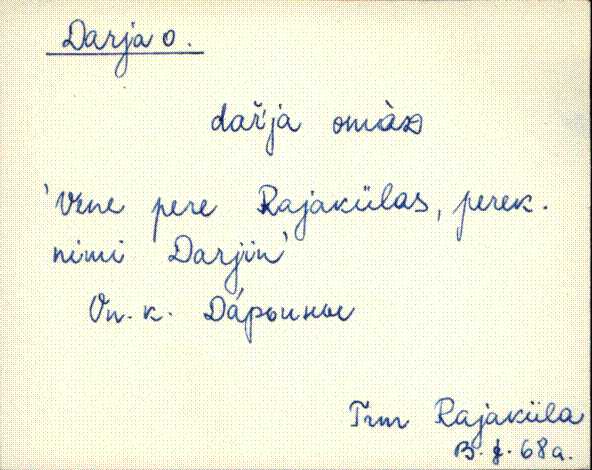 Darja o.
daŕja omàᴅ
'Vene pere Rajakülas, perek.
nimi Darjin'
Vn. k. Да́рьины
Trm Rajaküla
68a.